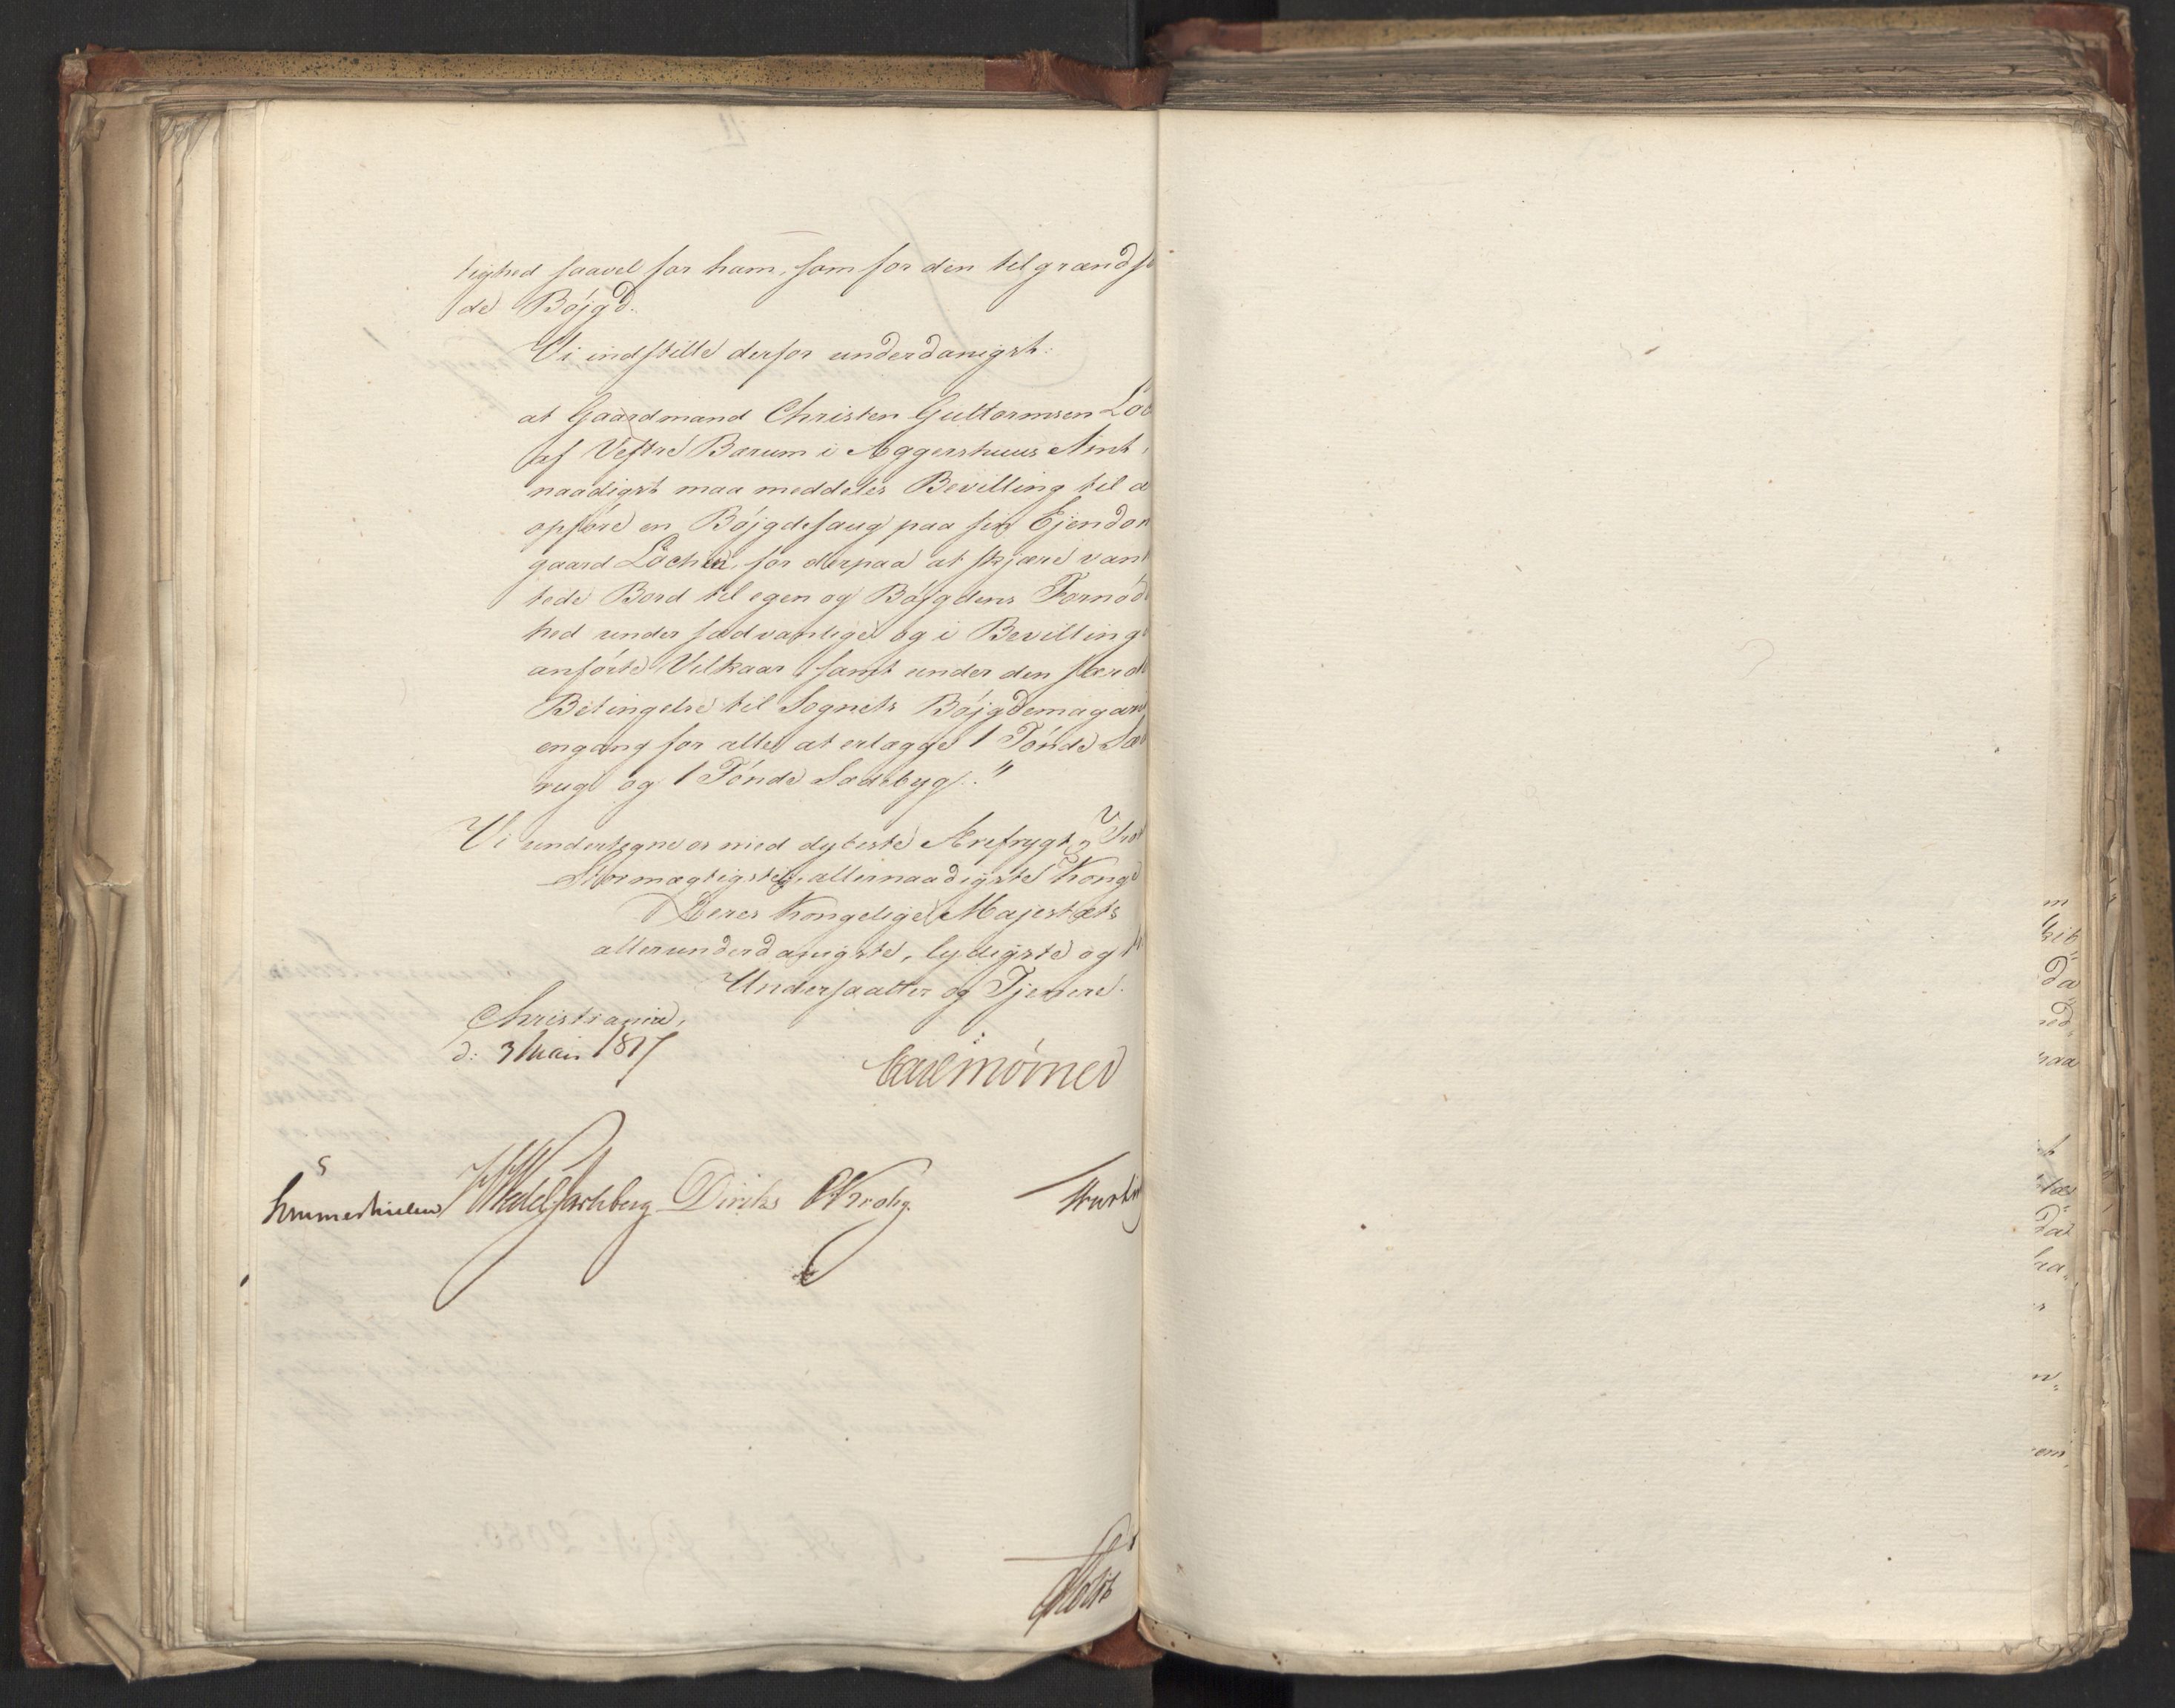 lighed saavel for ham, som for den tilgrændse
de Böjgd.
Vi indstille derfor underdanigst:
at Gaardmand Christen Guttormsen Löc
af Vestre Barum i Aggershuus Amt,
naadigst maa meddeles Bevilling til a
opföre en Böjgdesaug paa sin Ejendom
gaard Löchen, for derpaa at skjære vant
tede Bord til egen og Böjgdens Fornöd
hed under sædvanlige og i Bevilling
anförte Vilkaar samt under den særd
Betingelse til Sognets Böjgdemagazi
engang for alle at erlægge 1 Tönde Sæ
rug og 1 Tönde Sædebyg."
Vi undertegne os med dybeste Ærefrygt,
Stormægtigste, allernaadigste Konge
Deres Kongelige Majestæts
allerunderdanigste, lydigste og
Undersaatter og Tjenere.
Christiania,
d: 3 Mai 1817
Carl Mörner
Sommerhielm Wedel Jarlsberg Diriks Krohg
Holst